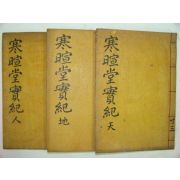 寒暄堂實紀 人
寒暄堂實紀 地
寒暄堂實紀 天